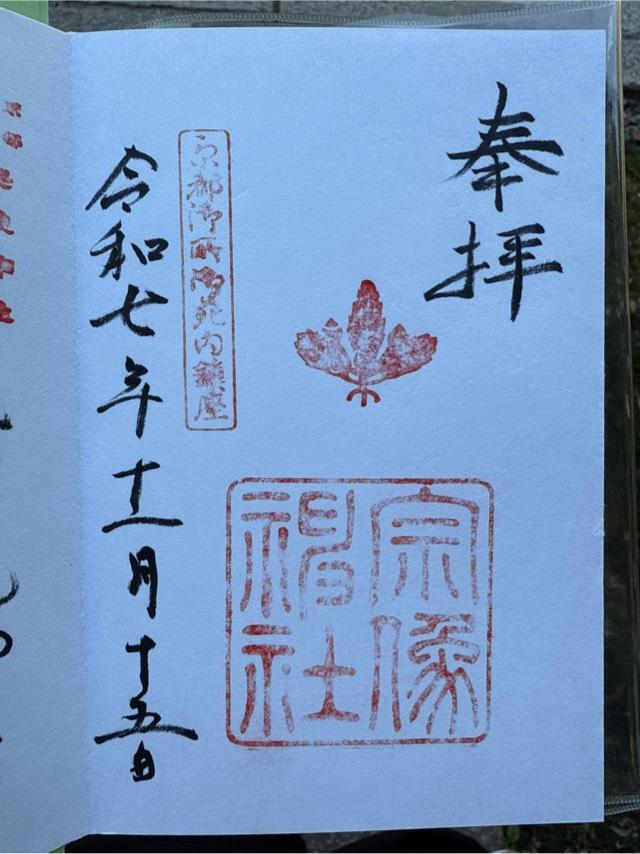 奉拝
宗像
神社
京都御所御苑内鎮座
令和七年十一月十五日